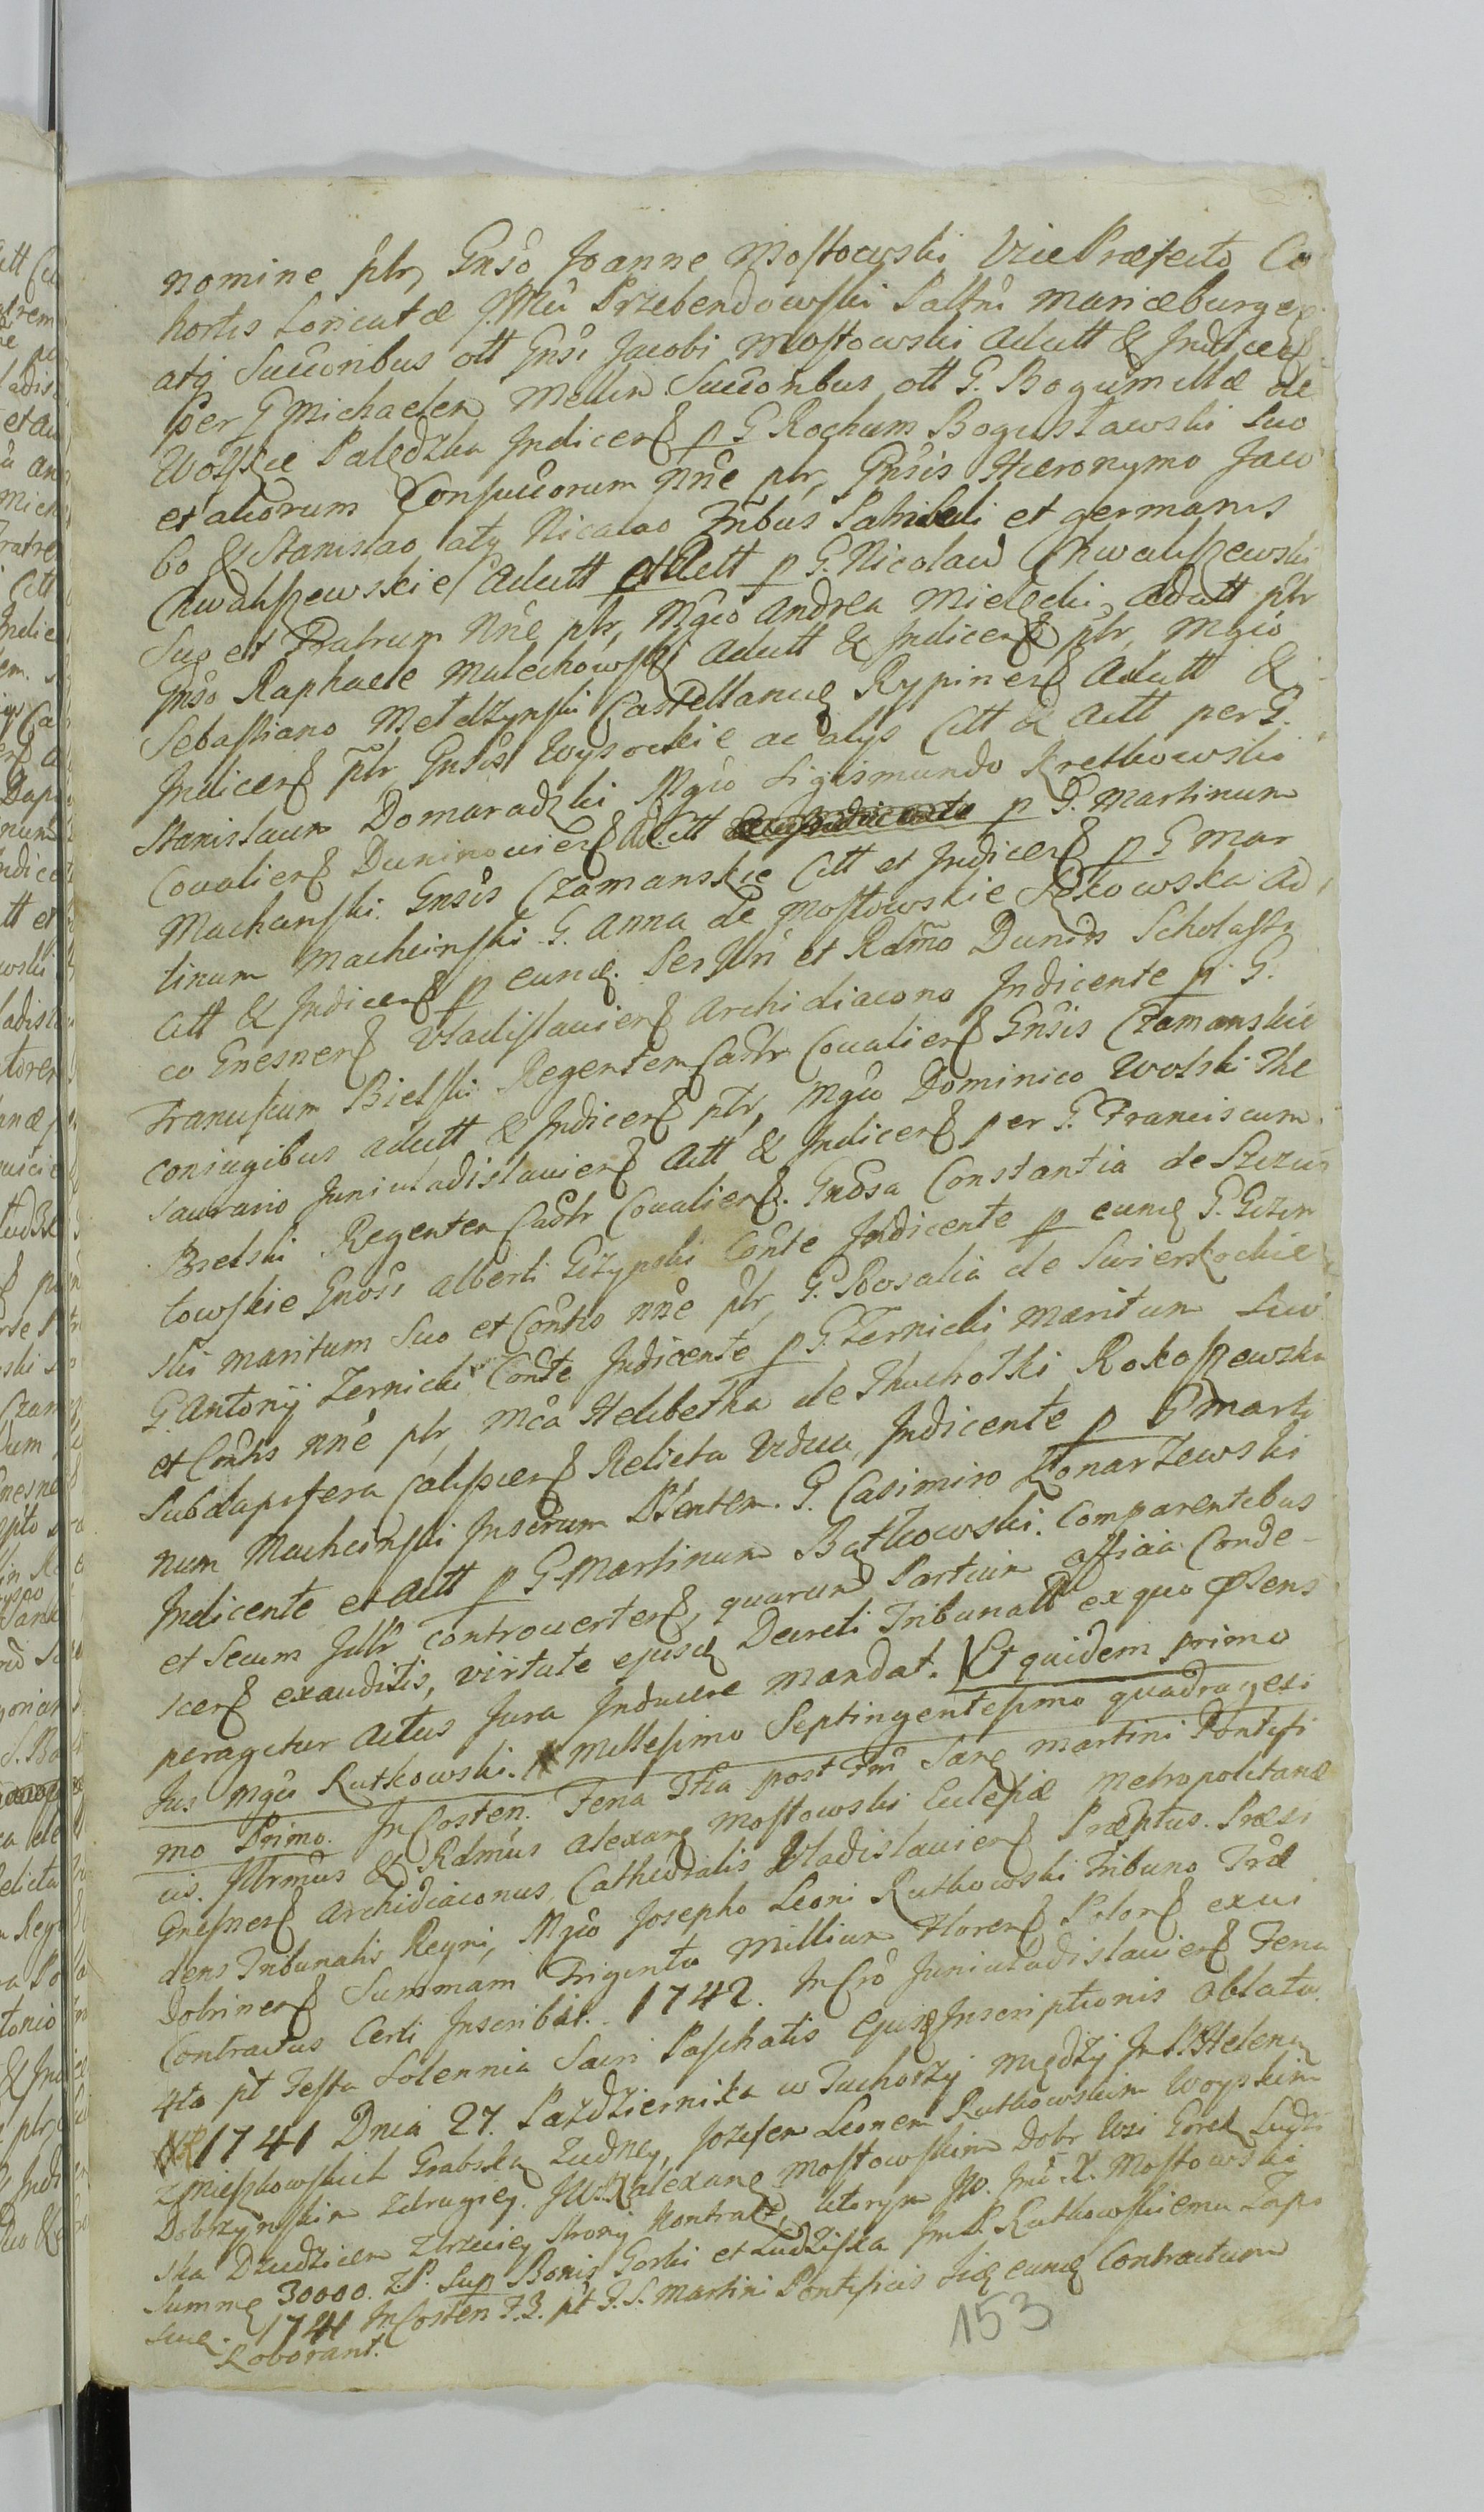 nomine plr, Gnso Joanne Mostowski Vice Præfecto Co
hortis Loricatæ Przebendowski Marieburgen
atq Succoribus olt Gnsi Jacobi Mostowski Adutt & Indicen
per G Michaelen Mellin Succoribus olt G. Bogumillæ de
Wolskie Palędzka Indicen p G Rochum Bogusławski suo
et aliorum Consuccorum nne plr, Gnsis Hieronymo Jaco
bo & Stanislao atq Nicolao Fribus et germanis
Chwaliszewskie Adutt p G. Nicolaum Chwaliszewski
suo et Fratrum Nne plr, Mgco Andrea Mielęcki, Adutt plr
Gnso Raphaele Malechowski Adutt & Indicen plr, Mgco
Sebastiano Mełdzynski Castellanus Rypinen Adutt &
Indicen plr Gnsis Wysockie ac alys Citt & Actt per G.
Stanislaum Domaradzki Mgco Sigismundo Kretkowski
Covalien Duninovien Ad. Citt p G. Martinum
Mackanski. Gnsis Czamanskie Citt et Indicen p G Mar
tinum Macheinski G. Anna de Mostowskie Sękowska Ad
Citt & Indicen p eund. Ser Illri et Rdmo Dunin Scholasti
co Gnesnen Vladislavien Archidiacono Indicente p G.
Franciscum Bielski Regentem Castr Covalien Gnsis Czamanskie
coniugibus adutt & Indicen plr, Mgco Dominico Wolski The
saurario Juniuladislavien Actt & Indicen per G. Franciscum
Bielski Regenten Castr Covalien. Gnosa Constantia de Szczu
towskie Gnosi Alberti Giżynski Conte Indicente p eund G. Gizin
ski maritum suo et Contis nne plr, G. Rosalia de Swierskockie
G. Antonij Zernicki Conte Indicente p G. Zernicki Maritum suo
et Contis nne plr, Mca Helibetha de Thucholki Rokoszewska
Subdapifera Calisien Relicta Vidua, Indicente p G Marti
num Macheinski Inserum Psenten. G. Casimiro Konarzewski
Indicente et Actt p G. Martinum Bątkowski. Comparentibus
et secum Jllr controverten, quarum Partium officia Conde-
scen exauditis, virtute ejusd Decreti Tribunalis ex quo Psens
peragitur Actus Jura Inducere mandat. Et quidem primo
Jus Mgci Rutkowski. Millesimo Septingentesimo quadragesi
mo Primo. In Costen. Feria 3tia post Ftm Sanc Martini Pontifi
cis. Illrmus & Rdmus Alexand Mostowski Eclesiæ Metropolitanæ
Gnesnen Archidiaconus, Cathedralis Vladislavien Præptus. Præsi
dens Tribunalis Regni, Mgco Josepho Leoni Rutkowski Tribuno Træ
Dobrinen Summam Triginta Millium Floren Polon ex vi
Contractus Certi Inscribit. 1742. In Cro Juniuladislavien Feria
4ta pt Festa Solennia Sacri Paschatis Ejusd Inscriptionis Oblata.
NB 1741 Dnia 27. Pazdziernika w Tuchorzy między Jr. P. Heleną
z Mieszkowskich Grabską z iedney, Jozefem Leonem Rutkowskim Woyskim
Dobrzynskim z drugiey. JW. X Alexand Mostowskim Dobr Wsi Gorek Ludzi
ska Dziedzicem z trzeciey strony Kontrakt, ktorym JW. Jmc X. Mostowski
Summę 30000. z.P. Sup Bonis Gorki et Ludziska Jm P. Rutkowskiemu Zapi
suie. 1741 In Costen F. 3. pt F. S. Martini Pontificis Jid eund Contractum
Roborant.
153